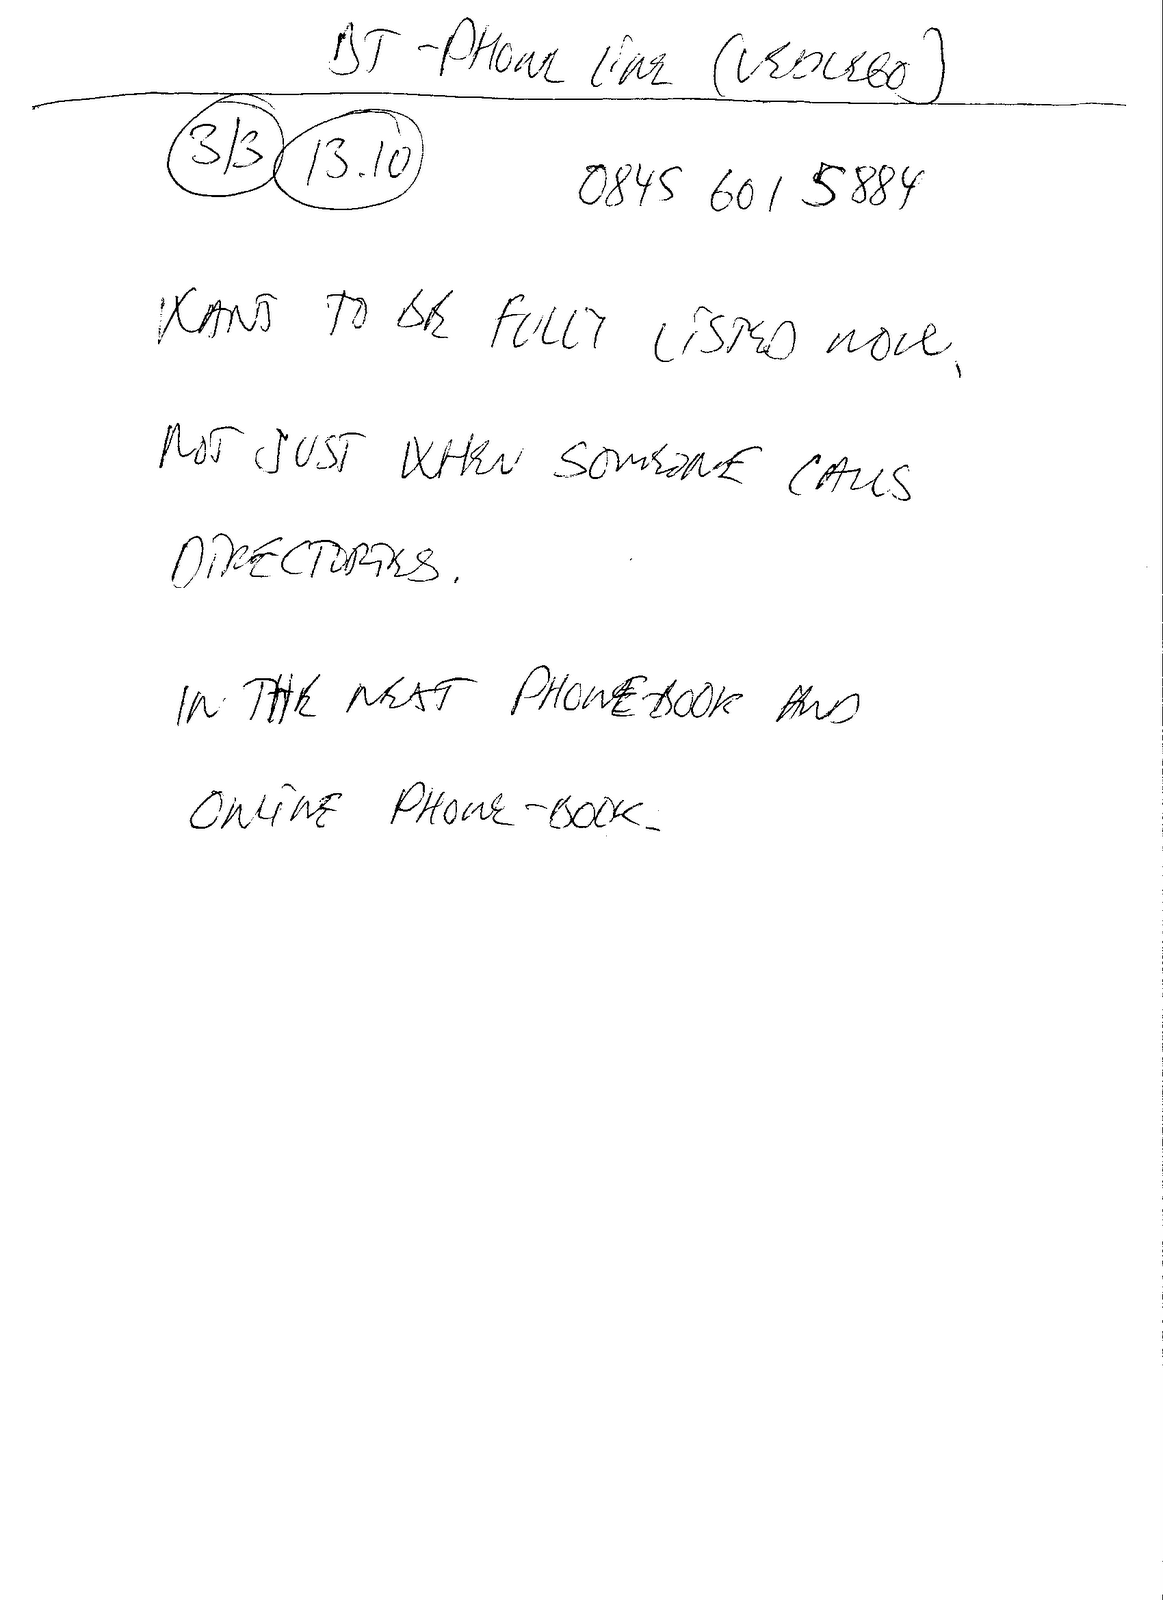 BT - PHONE LINE
3/3 13.10 0845 601 5884
WANT TO BE FULLY LISTED NOW,
NOT JUST WHEN SOMEONE CALLS
DIRECTORIES.
IN THE NEXT PHONE-BOOK AND
ONLINE PHONE-BOOK.